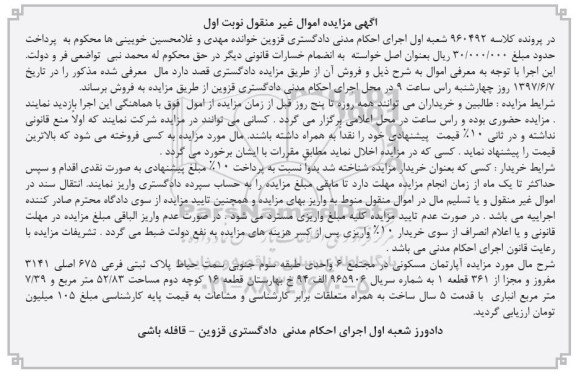 آگهی مزایده اموال غیر منقول نوبت اول
در پرونده کلاسه ۹۶۰۴۹۲ شعبه اول اجرای احکام مدنی دادگستری قزوین خوانده مهدی و غلامحسین خوبینی ها محکوم به پرداخت
حدود مبلغ ۳۰/۰۰۰/۰۰۰ ریال بعنوان اصل خواسته به انضمام خسارات قانونی دیگر در حق محکوم له محمد نبی تواضعی فر و دولت.
این اجرا با توجه به معرفی اموال به شرح ذیل و فروش آن از طریق مزایده دادگستری قصد دارد مال معرفی شده مذکور را در تاریخ
۱۳۹۷/۶/۷ روز چهارشنبه راس ساعت ۹ در محل اجرای احکام مدنی دادگستری قزوین از طریق مزایده به فروش برساند.
شرایط مزایده : طالبین و خریداران می توانند همه روزه تا پنج روز قبل از زمان مزایده از اموال فوق با هماهنگی این اجرا بازدید نمایند
. مزایده حضوری بوده و راس ساعت در محل اعلامی برگزار می گردد . کسانی می توانند در مزایده شرکت نمایند که اولاً منع قانونی
نداشته و در ثانی ۱۰٪ قیمت پیشنهادی خود را نقدا به همراه داشته باشند. مال مورد مزایده به کسی فروخته می شود که بالاترین
قیمت را پیشنهاد نماید . کسی که در مزایده اخلال نماید مطابق مقررات با ایشان برخورد می گردد .
شرایط خریدار : کسی که بعنوان خریدار مزایده شناخته شد بدوا نسبت به پرداخت ۱۰٪ مبلغ پیشنهادی به صورت نقدی اقدام و سپس
حداکثر تا یک ماه از زمان انجام مزایده مهلت دارد تا مابقی مبلغ مزایده را به حساب سپرده دادگستری واریز نمایند. انتقال سند در
اموال غیر منقول و یا تسلیم مال در اموال منقول منوط به واریز بهای مزایده و همچنین تایید مزایده از سوی دادگاه محترم صادر کننده
اجراییه می باشد . در صورت عدم تایید مزایده کلیه مبلغ واریزی مسترد می شود . در صورت عدم واریز الباقی مبلغ مزایده در مهلت
قانونی و یا اعلام انصراف از سوی خریدار ۱۰٪ واریزی پس از کسر هزینه های مزایده به نفع دولت ضبط می گردد . تشریفات مزایده با
رعایت قانون اجرای احکام مدنی می باشد .
شرح مال مورد مزایده آپارتمان مسکونی در مجتمع ۶ واحدی طبقه سوم جنوبی سمت حیاط پلاک ثبتی فرعی ۶۷۵ اصلی ۳۱۴۱
مفروز و مجزا از ۳۶۱ قطعه ۱ به شماره سریال ۹۶۵۹۰۶ الف ۹۳ ج بهارستان قطعه ۱۶ کوچه دوم مساحت ۵۲/۸۳ متر مربع و ۷/۳۹
متر مربع انباری با قدمت ۵ سال ساخت به همراه متعلقات برابر کارشناسی و مشاعات به قیمت پایه کارشناسی مبلغ ۱۰۵ میلیون
تومان ارزیابی گردید.
دادورز شعبه اول اجرای احکام مدنی دادگستری قزوین - قافله باشی